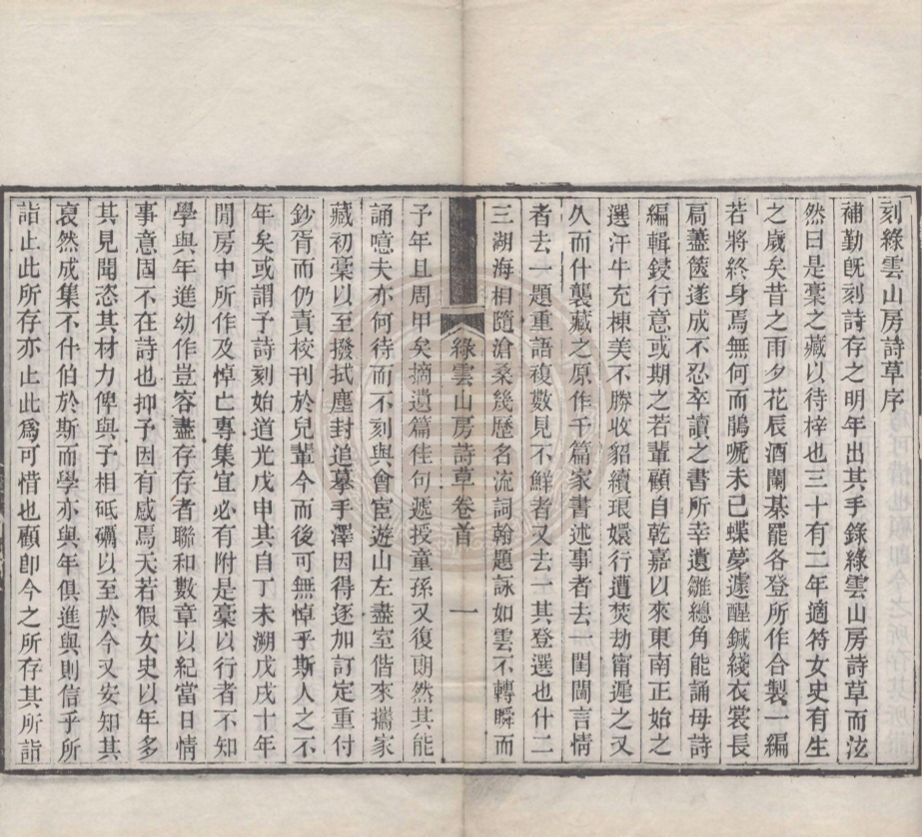 刻綠雲山房詩草序
補勤旣刻詩存之明年出其手錄綠雲山房詩草而泫
然曰是稾之藏以待梓也三十有二年適符女史有生
之歲矣昔之雨夕花辰酒闌棊罷各登所作合製一編
若將終身焉無何而鵑嗁未已蝶夢遽醒鍼綫衣裳長
扃藎篋遂成不忍卒讀之書所幸遺雛總角能誦母詩
編輯鋟行意或期之若輩顧自乾嘉以來東南正始之
選汗牛充棟美不勝收貂續琅嬛行遭焚劫甯遲之又
久而什襲藏之原作千篇家書述事者去一閨閫言情
者去一題重語複數見不鮮者又去一其登選也什二
三湖海相隨滄桑幾歷名流詞翰題詠如雲不轉瞬而
綠雲山房詩草 卷首 一
子年且周甲矣摘遺篇佳句遞授童孫又復朗然其能
誦噫夫亦何待而不刻與會宦遊山左盡室偕來攜家
藏初稾以至撥拭塵封追摹手澤因得逐加訂定重付
鈔胥而仍責校刊於兒輩今而後可無悼乎斯人之不
年矣或謂予詩刻始道光戊申其自丁未溯戊戌十年
閒房中所作及悼亡專集宜必有附是稾以行者不知
學與年進幼作豈容盡存存者聯和數章以紀當日情
事意固不在詩也抑予因有感焉天若假女史以年多
其見聞恣其材力俾與予相砥礪以至於今又安知其
裒然成集不什伯於斯而學亦與年俱進與則信乎所
詣止此所存亦止此爲可惜也顧卽今之所存其所詣